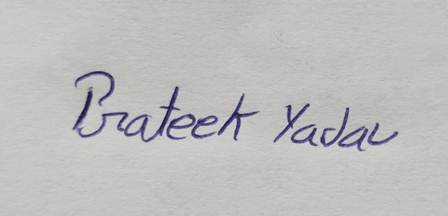 Prateek Yadav